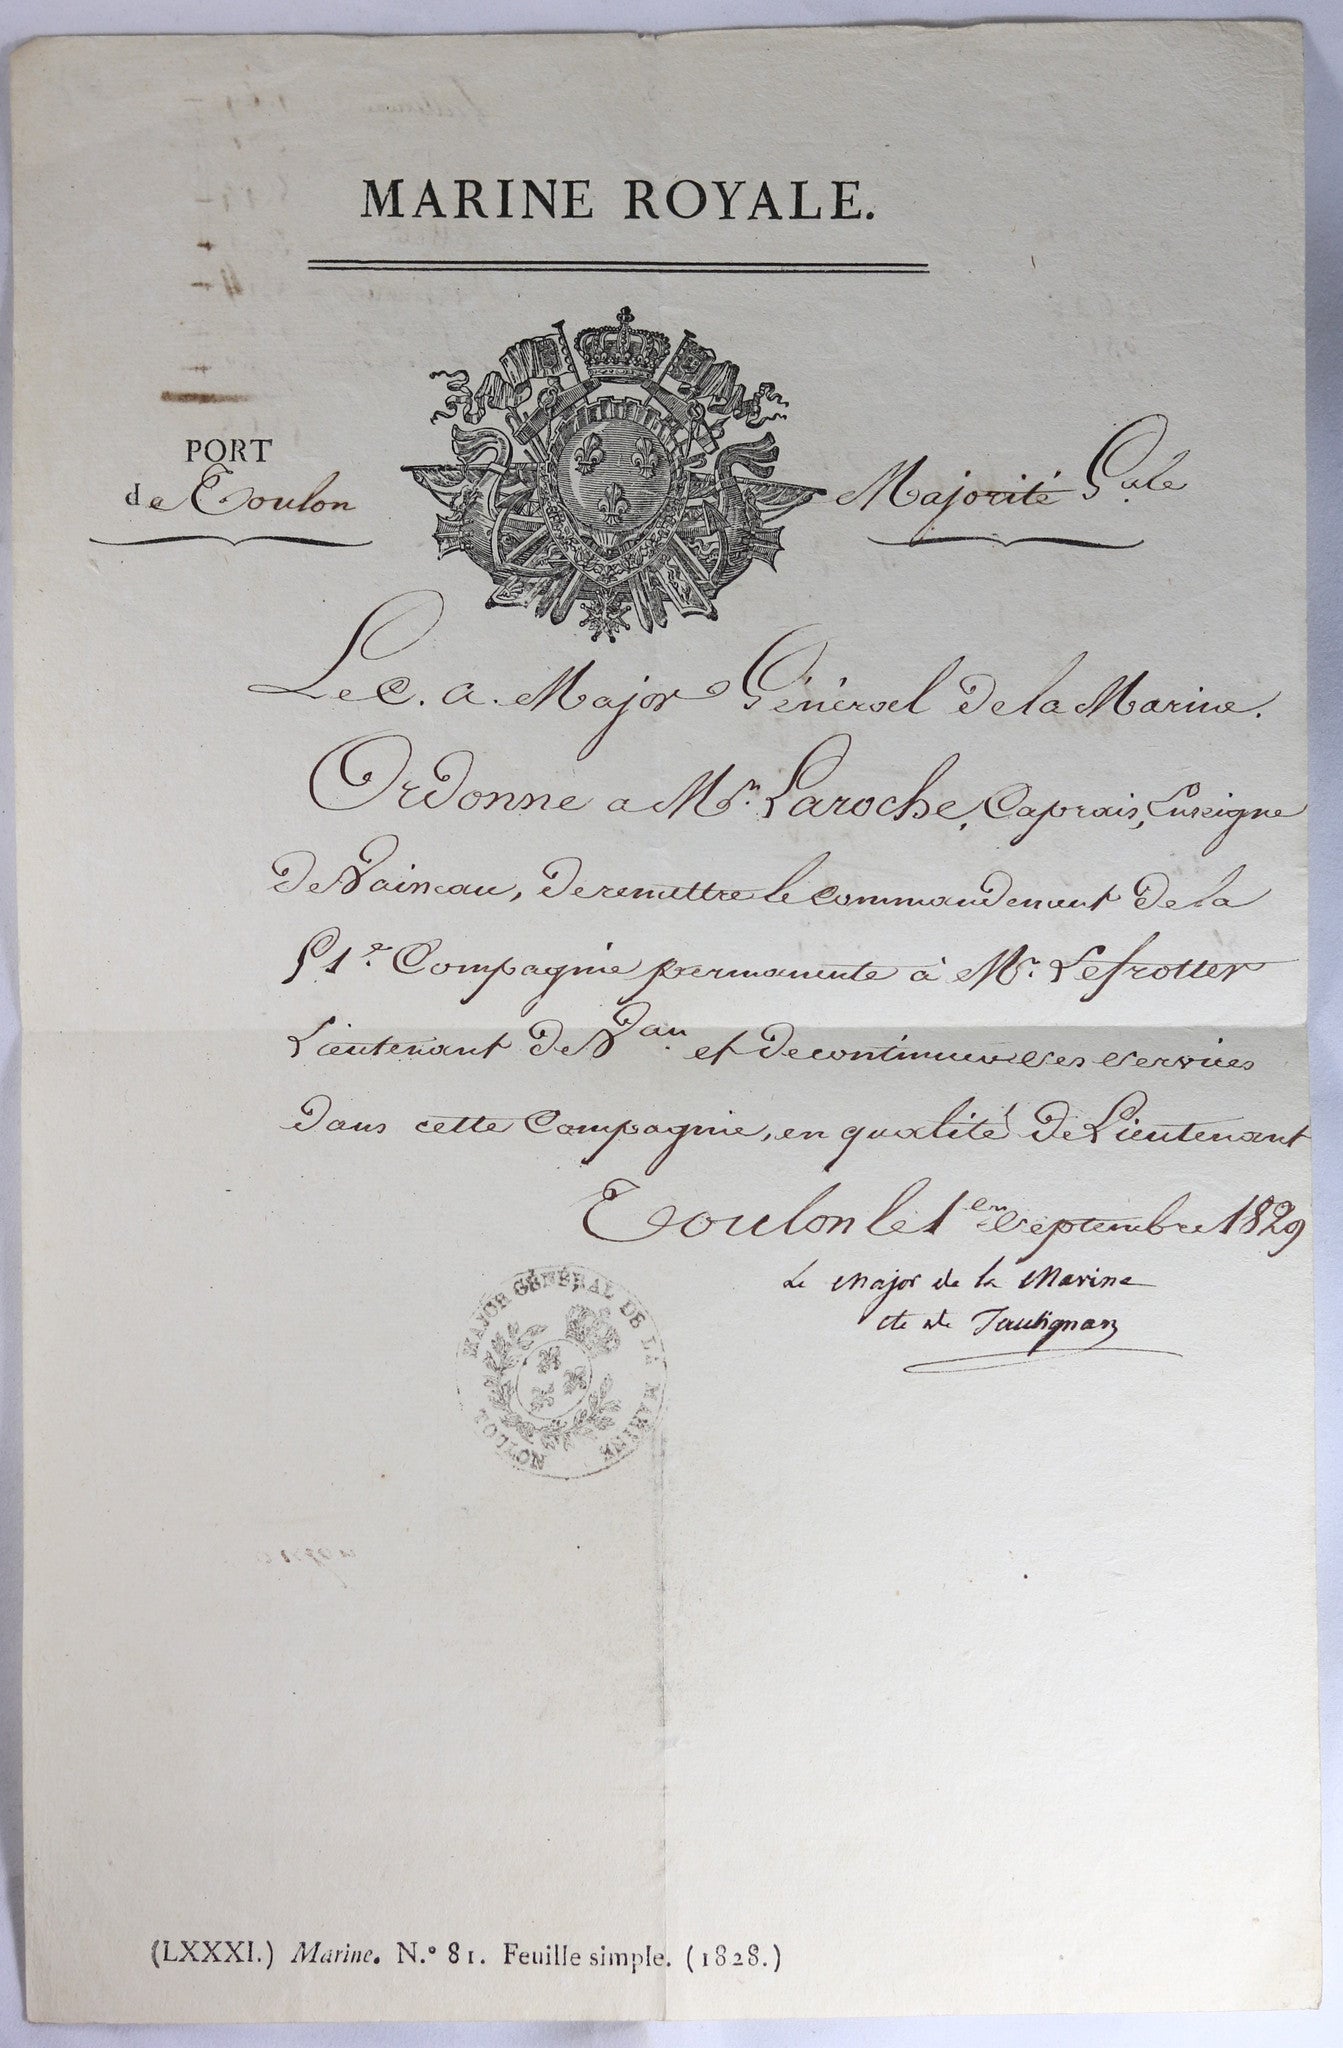 MARINE ROYALE.
PORT
de Toulon
Majorité Gale
Le C. A. Major Général de la Marine.
Ordonne a Mr. Laroche, Caprais, Enseigne
de Vaisseau, de remettre le commandement de la
51e. Compagnie permanente à Mr. Lefrotter
Lieutenant de Vau. et de continuer ses services
dans cette Compagnie, en qualité de Lieutenant
Toulon le 1er Septembre 1829
Le Major de la Marine
cte de
MAJOR GÉNÉRAL DE LA MARINE
TOULON
(LXXXI.) Marine. N.º 81. Feuille simple. (1828.)